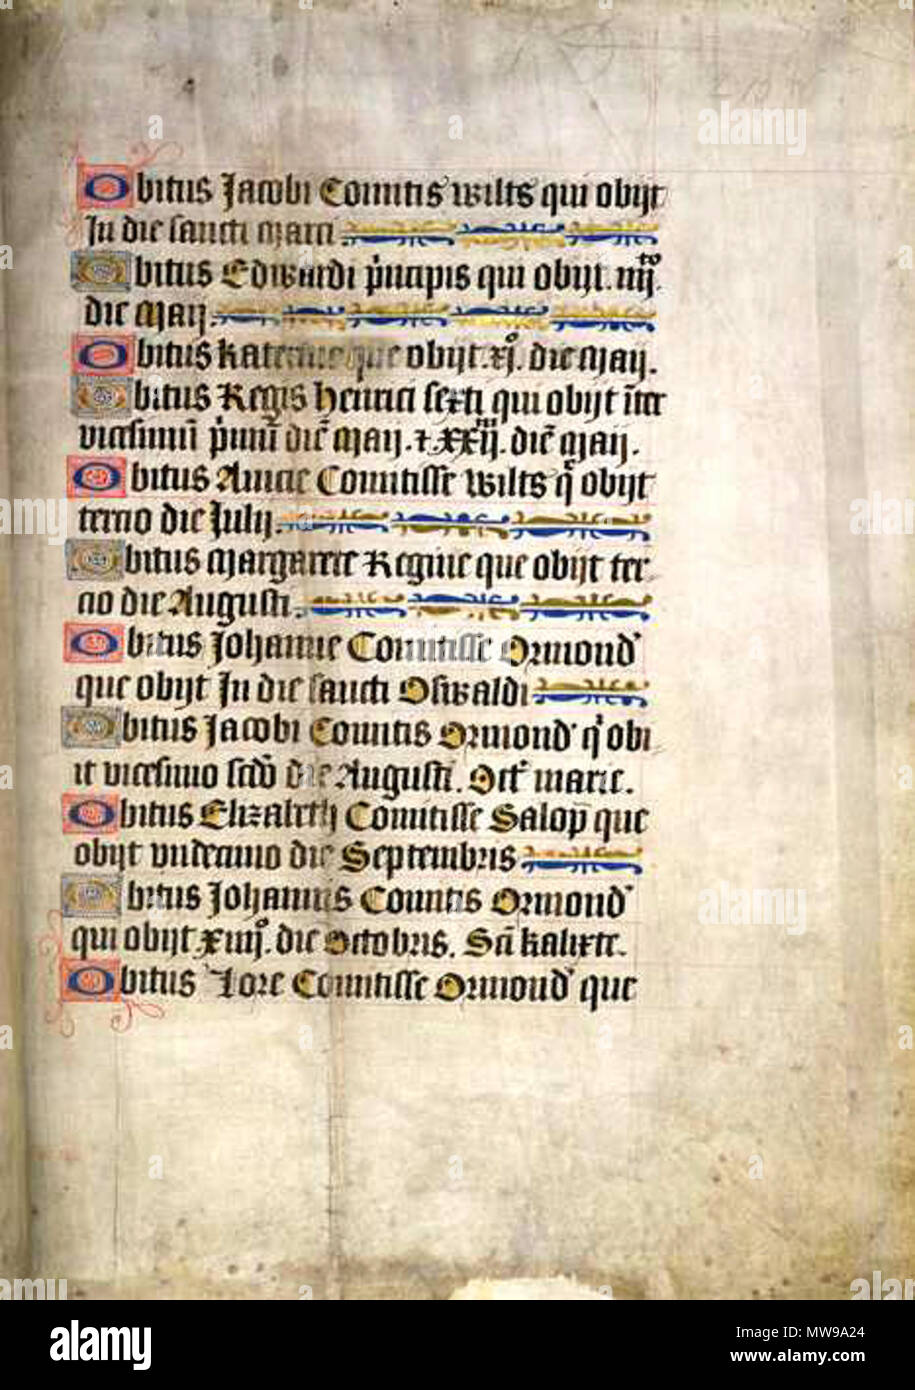 Obitus Jacobi Comitis wilts qui obijt
In die sancti marci
Obitus Edwardi p'ncipis qui obijt .iiijto.
die maij.
Obitus katerine que obijt .xjo. die maij.
Obitus Regis henrici sexti qui obijt int'
vicesimū p'mū diē maij . & .xxijm. diē maij.
Obitus Amicie Comitisse wilts q' obijt
tercio die Julij.
Obitus margarete Regine que obijt ter-
cio die Augusti.
Obitus Johanne Comitisse Ormond'
que obijt In die sancti Oswaldi
Obitus Jacobi Comitis Ormond' q' obi
it vicesimo scdō die Augusti. Oct' marie.
Obitus Elizabeth Comitisse Salop̄ que
obijt undecimo die Septembris
Obitus Johannis Comitis Ormond'
qui obijt .xiiijo. die Octobris. Sā kalixte.
Obitus Lore Comitisse Ormond' que
alamy
alamy
Image ID: MW9A24
www.alamy.com